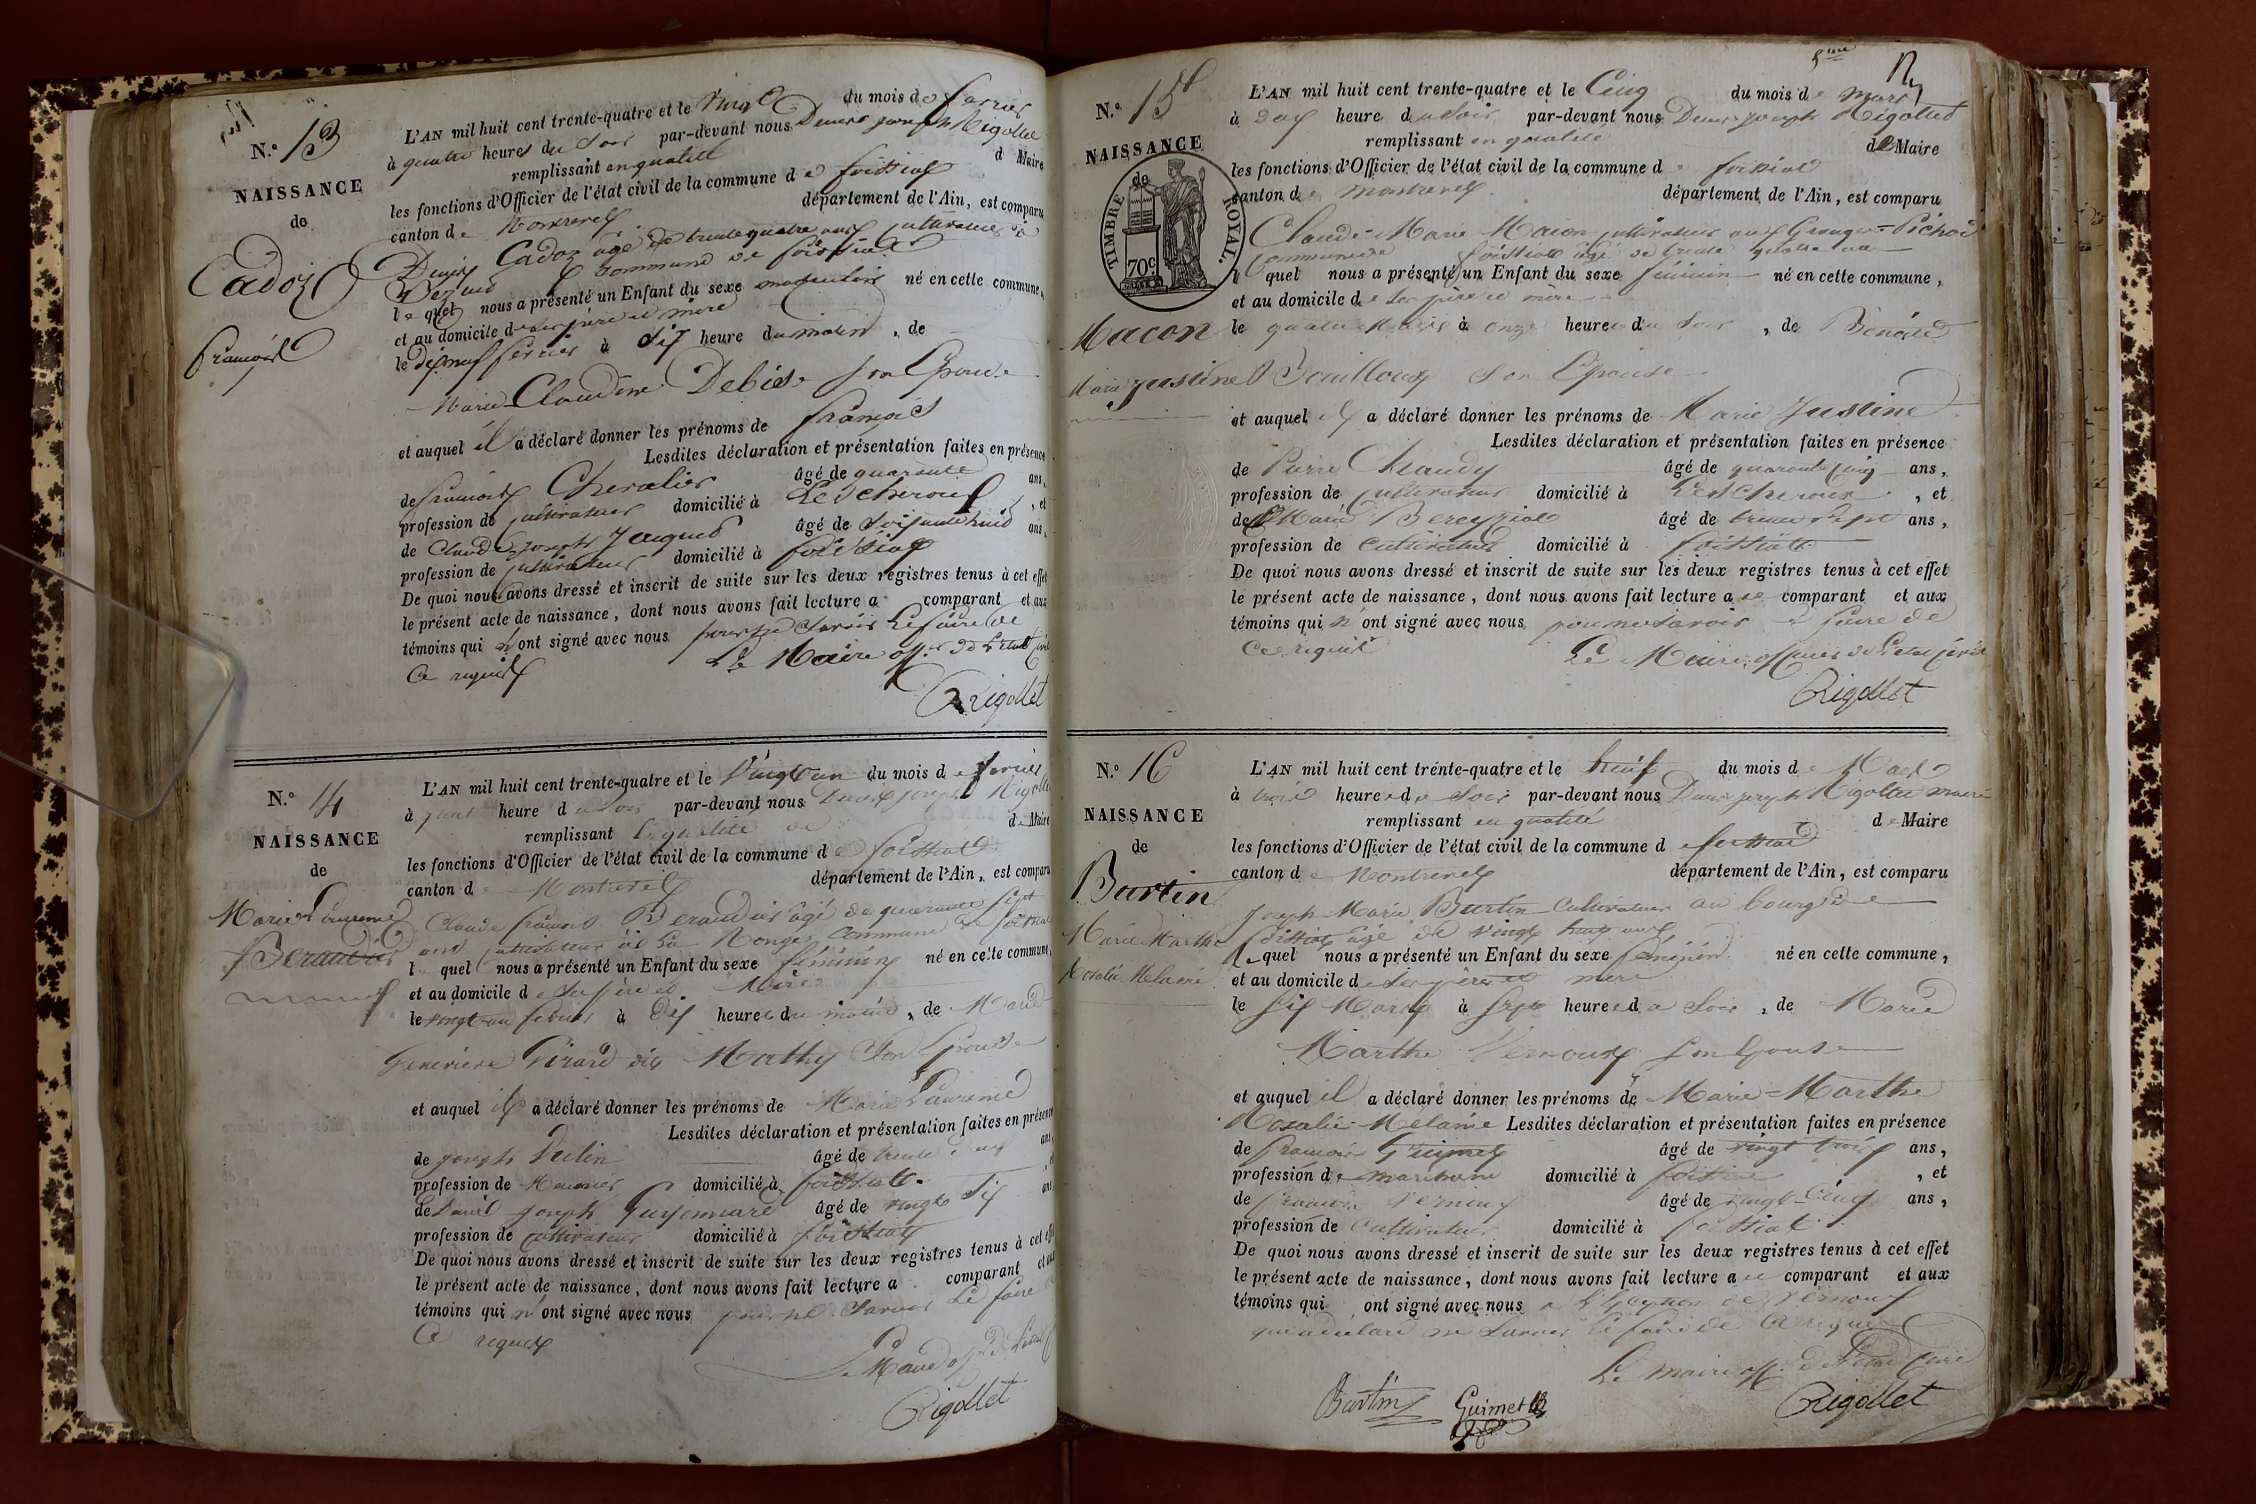 N.o 13
NAISSANCE
de
Cadoz
françois
L'AN mil huit cent trente-quatre et le vingt du mois de fevrier
à quatre heures du soir par-devant nous Denis joseph Rigollet
remplissant en qualité de Maire
les fonctions d'Officier de l'état civil de la commune de foissiat
canton de Montrevel département de l'Ain, est comparu
Denis Cadoz agé de trente quatre ans cultivateur à
commune de foissiat
le quel nous a présenté un Enfant du sexe masculin né en cette commune,
et au domicile de ses père et mère
le dixneuf fevrier à dix heure du matin, de
Marie Claudine Debiese son Epouse
et auquel il a déclaré donner les prénoms de françois
Lesdites déclaration et présentation faites en présence
de françois Chevalier âgé de quarante ans,
profession de cultivateur domicilié à Lescheroux, et
de Claude joseph Jacquet âgé de soixante huit ans,
profession de cultivateur domicilié à foissiat
De quoi nous avons dressé et inscrit de suite sur les deux registres tenus à cet effet
le présent acte de naissance, dont nous avons fait lecture a comparant et aux
témoins qui n'ont signé avec nous pour ne savoir Le faire de
Ce requis
Le Maire off.er de L'etat civil
Rigollet
N.o 14
NAISSANCE
de
Marie Laurence
Beraudier
L'AN mil huit cent trente-quatre et le vingt un du mois de fevrier
à heure du soir par-devant nous Denis joseph Rigollet
remplissant en qualité de de Maire
les fonctions d'Officier de l'état civil de la commune de foissiat
canton de Montrevel département de l'Ain, est comparu
Claude françois Beraudier âgé de quarante sept
ans cultivateur à La Ronge commune de foissiat
le quel nous a présenté un Enfant du sexe féminin né en cette commune,
et au domicile de ses père et Mère
le vingt un fevrier à dix heures du matin, de Marie
Genevieve Pirard dit Mathy son Epouse
et auquel il a déclaré donner les prénoms de Marie Laurence
Lesdites déclaration et présentation faites en présence
de joseph âgé de trente ans,
profession de domicilié à foissiat, et
de joseph Guyonnard âgé de vingt six ans,
profession de cultivateur domicilié à foissiat
De quoi nous avons dressé et inscrit de suite sur les deux registres tenus à cet effet
le présent acte de naissance, dont nous avons fait lecture a comparant et aux
témoins qui n'ont signé avec nous pour ne savoir Le faire
Ce requis
Le Maire off. de L'etat C
Rigollet
N.o 15
NAISSANCE
de
TIMBRE ROYAL.
70c
Macon
Marie justine
L'AN mil huit cent trente-quatre et le Cinq du mois de mars
à dix heure du soir par-devant nous Denis joseph Rigollet
remplissant en qualité de Maire
les fonctions d'Officier de l'état civil de la commune de foissiat
canton de montrevel département de l'Ain, est comparu
Claude-Marie Macon cultivateur aux Granges-Pichod
commune de foissiat âgé de trente quatre ans
l quel nous a présenté un Enfant du sexe féminin né en cette commune,
et au domicile de ses père et mère
le quatre Mars à onze heures du soir, de Benoite
Bouilloux son Epouse
et auquel il a déclaré donner les prénoms de Marie Justine
Lesdites déclaration et présentation faites en présence
de Pierre Chaudy âgé de quarante cinq ans,
profession de cultivateur domicilié à Lescheroux, et
de Marie Bereyziat âgé de trente sept ans,
profession de cultivateur domicilié à foissiat
De quoi nous avons dressé et inscrit de suite sur les deux registres tenus à cet effet
le présent acte de naissance, dont nous avons fait lecture a ce comparant et aux
témoins qui n'ont signé avec nous pour ne savoir le faire de
Ce requis
Le Maire officier de L'etat civil
Rigollet
N.o 16
NAISSANCE
de
Burtin
Marie Marthe
Rosalie Melanie
L'AN mil huit cent trente-quatre et le huit du mois de Mars
à trois heures du soir par-devant nous Denis joseph Rigollet maire
remplissant en qualité de Maire
les fonctions d'Officier de l'état civil de la commune de foissiat
canton de Montrevel département de l'Ain, est comparu
Joseph Marie Burtin Cultivateur au bourg de
foissiat âgé de vingt huit ans
le quel nous a présenté un Enfant du sexe féminin né en cette commune,
et au domicile de ses père et mère
le six Mars à sept heures du soir, de Marie
Marthe Vernoux son Epouse
et auquel il a déclaré donner les prénoms de Marie-Marthe
Rosalie-Mélanie Lesdites déclaration et présentation faites en présence
de François Guimet âgé de vingt trois ans,
profession de domicilié à foissiat, et
de françois Vernoux âgé de vingt-cinq ans,
profession de Cultivateur domicilié à foissiat
De quoi nous avons dressé et inscrit de suite sur les deux registres tenus à cet effet
le présent acte de naissance, dont nous avons fait lecture a ce comparant et aux
témoins qui ont signé avec nous a L'Exception de Vernoux
qui a déclaré ne savoir Le faire de Ce requis
Le maire off. de L'etat Civil
Burtin Guimet Rigollet